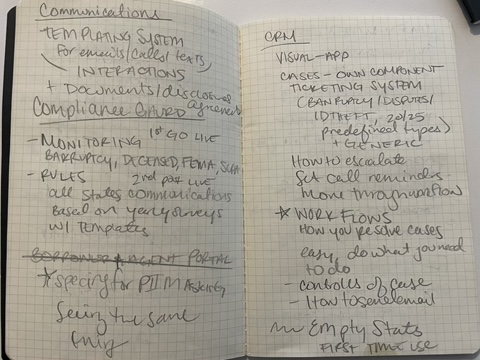 Communications
TEMPLATING SYSTEM
For emails/calls/texts
INTERACTIONS
+ Documents/disclosures
agreements
Compliance GAURD
1st GO LIVE
- MONITORING
BANKRUPTCY, DECEASED, FEMA, SCRA
- RULES 2nd par LIVE
all States communications
Based on yearly surveys
w/ Templates
BORROWER AGENT PORTAL
* specing for PII MASKING
Seeing the same
CRM
VISUAL-APP
CASES - OWN COMPONENT
TICKETING SYSTEM
(BANRUPTCY/DISPUTES/
ID THEFT, 20/25
predefined types)
+ GENERIC
How to escalate
Set call reminders
Move through workflow
* WORKFLOWS
HOW you resolve cases
easy, do what you need
to do
- controlls of case
- How to send email
Empty Stats
FIRST TIME USE